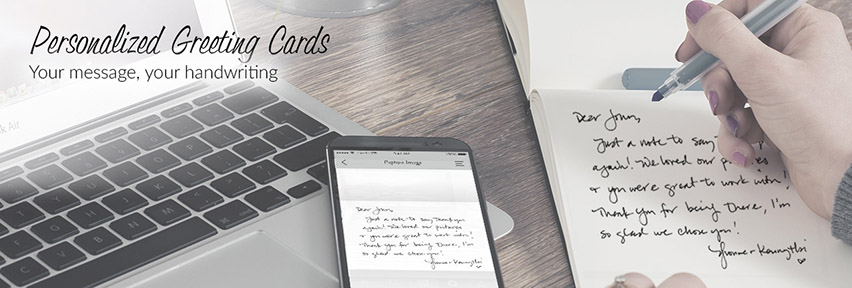 Personalized Greeting Cards
Your message, your handwriting
Air
Capture Image
Dear Jenn,
Just a note to say Thank you
again! We loved our pictures
& you were great to work with!
Thank you for being There, I'm
so glad we chose you!
Dear Jenn,
Just a note to say
again! We loved our pictures
& you were great to work with!
Thank you for being There, I'm
so glad we chose you!